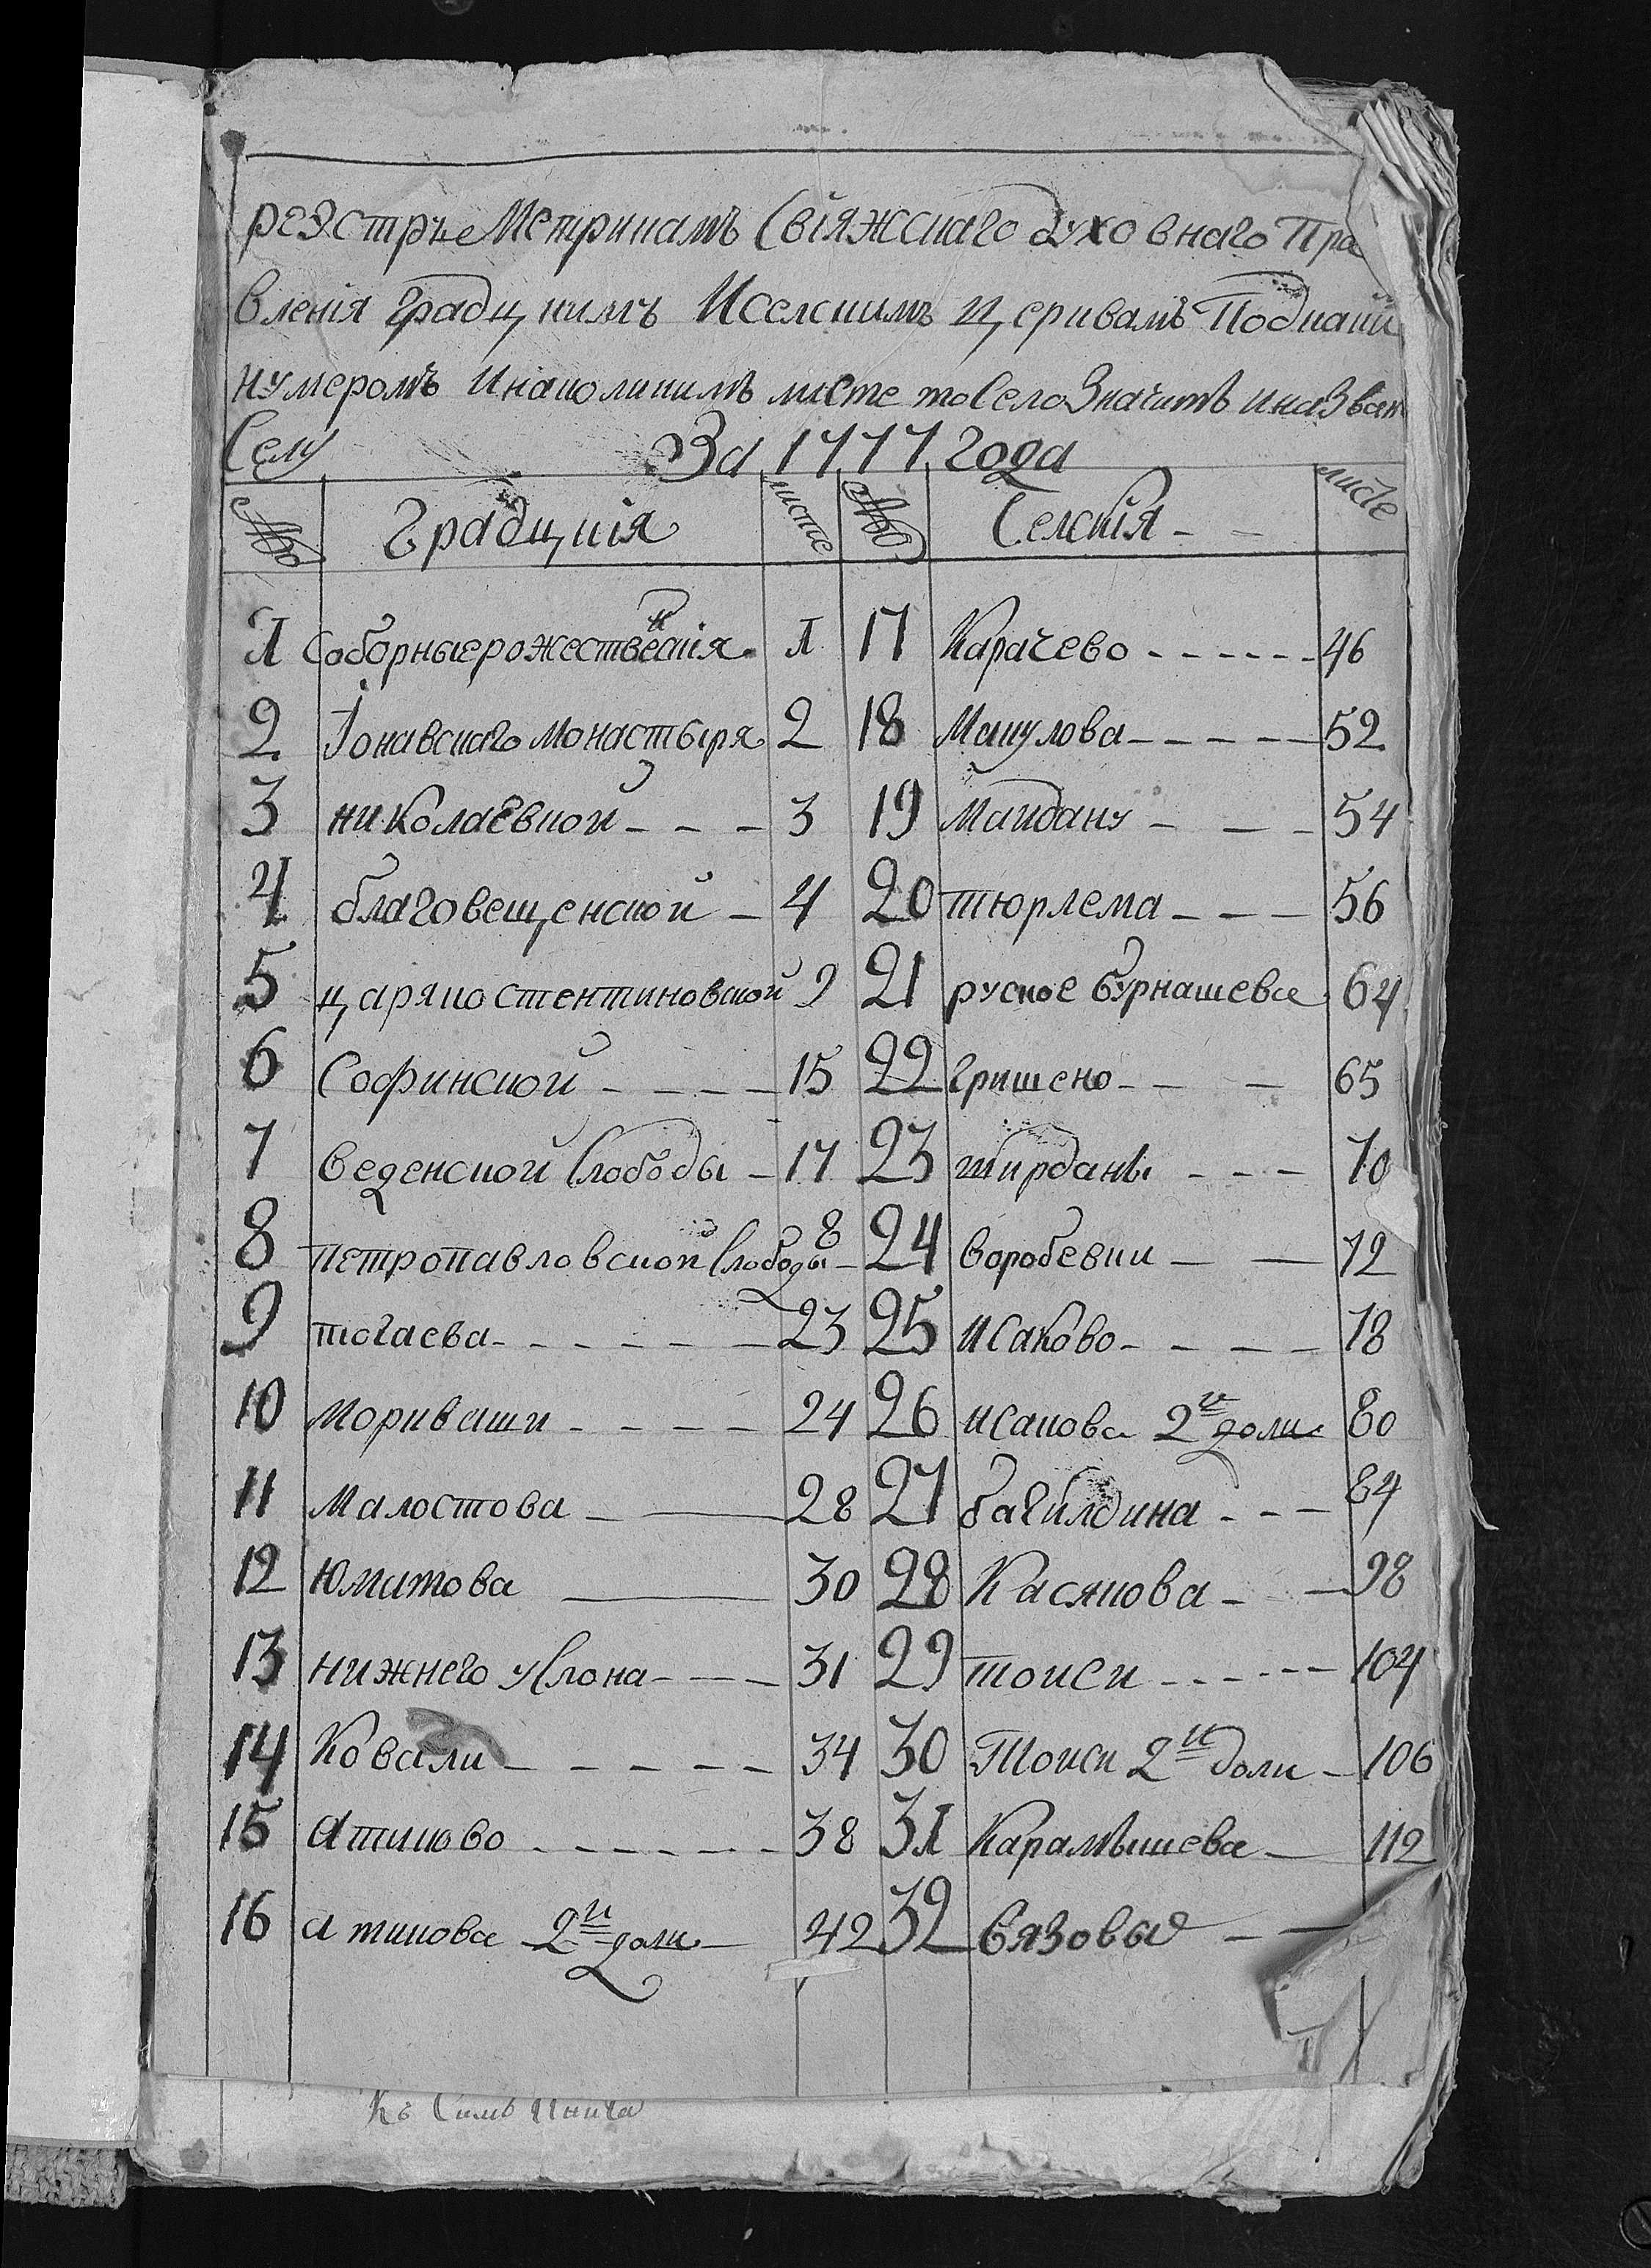 реэстръ Метрикамъ Свіяжскаго духовнаго Пра
вленія градцкимъ Иселскимъ Церквамъ Подкаки
нумеромъ Инаколикимъ листе тоСело Значитъ иназван
Селу За 1777 года
№ Градцкія листе № Селскія листе
1 Соборныерожественскія 1 17 Карачево 46
2 Іонавскаго монастыря 2 18 Макулова 52
3 николаевской 3 19 Маидану 54
4 благовещенской 4 20 тюрлема 56
5 царякостентиновской 9 21 руское бурнашева 64
6 Софинской 15 22 гришено 65
7 веденской Слободы 17 23 ширданы 70
8 петропавловской Слободы 8 24 воробевки 72
9 тогаева 23 25 исаково 78
10 Моркваши 24 26 исакова 2и доли 80
11 Малостова 28 27 багилдина 84
12 Юматова 30 28 Касякова 98
13 нижнего услона 31 29 тоиси 104
14 Ковали 34 30 Тоиси 2и доли 106
15 Атиково 38 31 Карамышева 112
16 атикова 2и доли 42 32 вязовые
Къ Симъ Книга